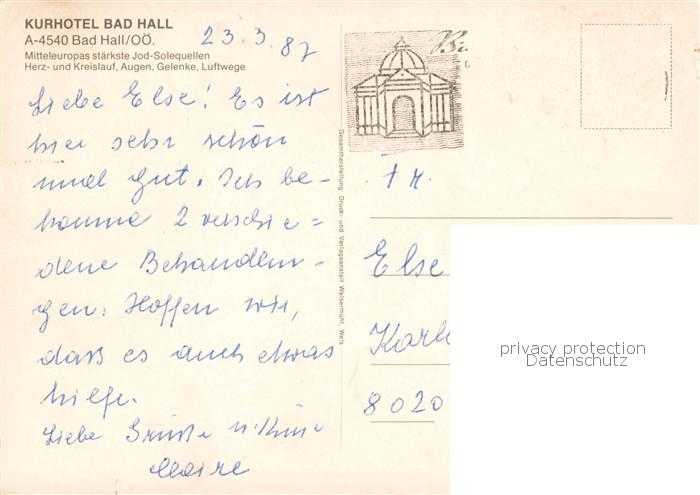 KURHOTEL BAD HALL
A-4540 Bad Hall/OÖ.
Mitteleuropas stärkste Jod-Solequellen
Herz- und Kreislauf, Augen, Gelenke, Luftwege
23.3.87
Liebe Else! Es ist
hier sehr schön
und gut. Ich be-
komme 2 verschie=
dene Behandlun-
gen. Hoffen wir,
daß es auch etwas
hilft.
Liebe Grüße u.
Gesamtherstellung: Druck- und Verlagsanstalt Welsermühl, Wels
Fr.
Else
8020
privacy protection
Datenschutz